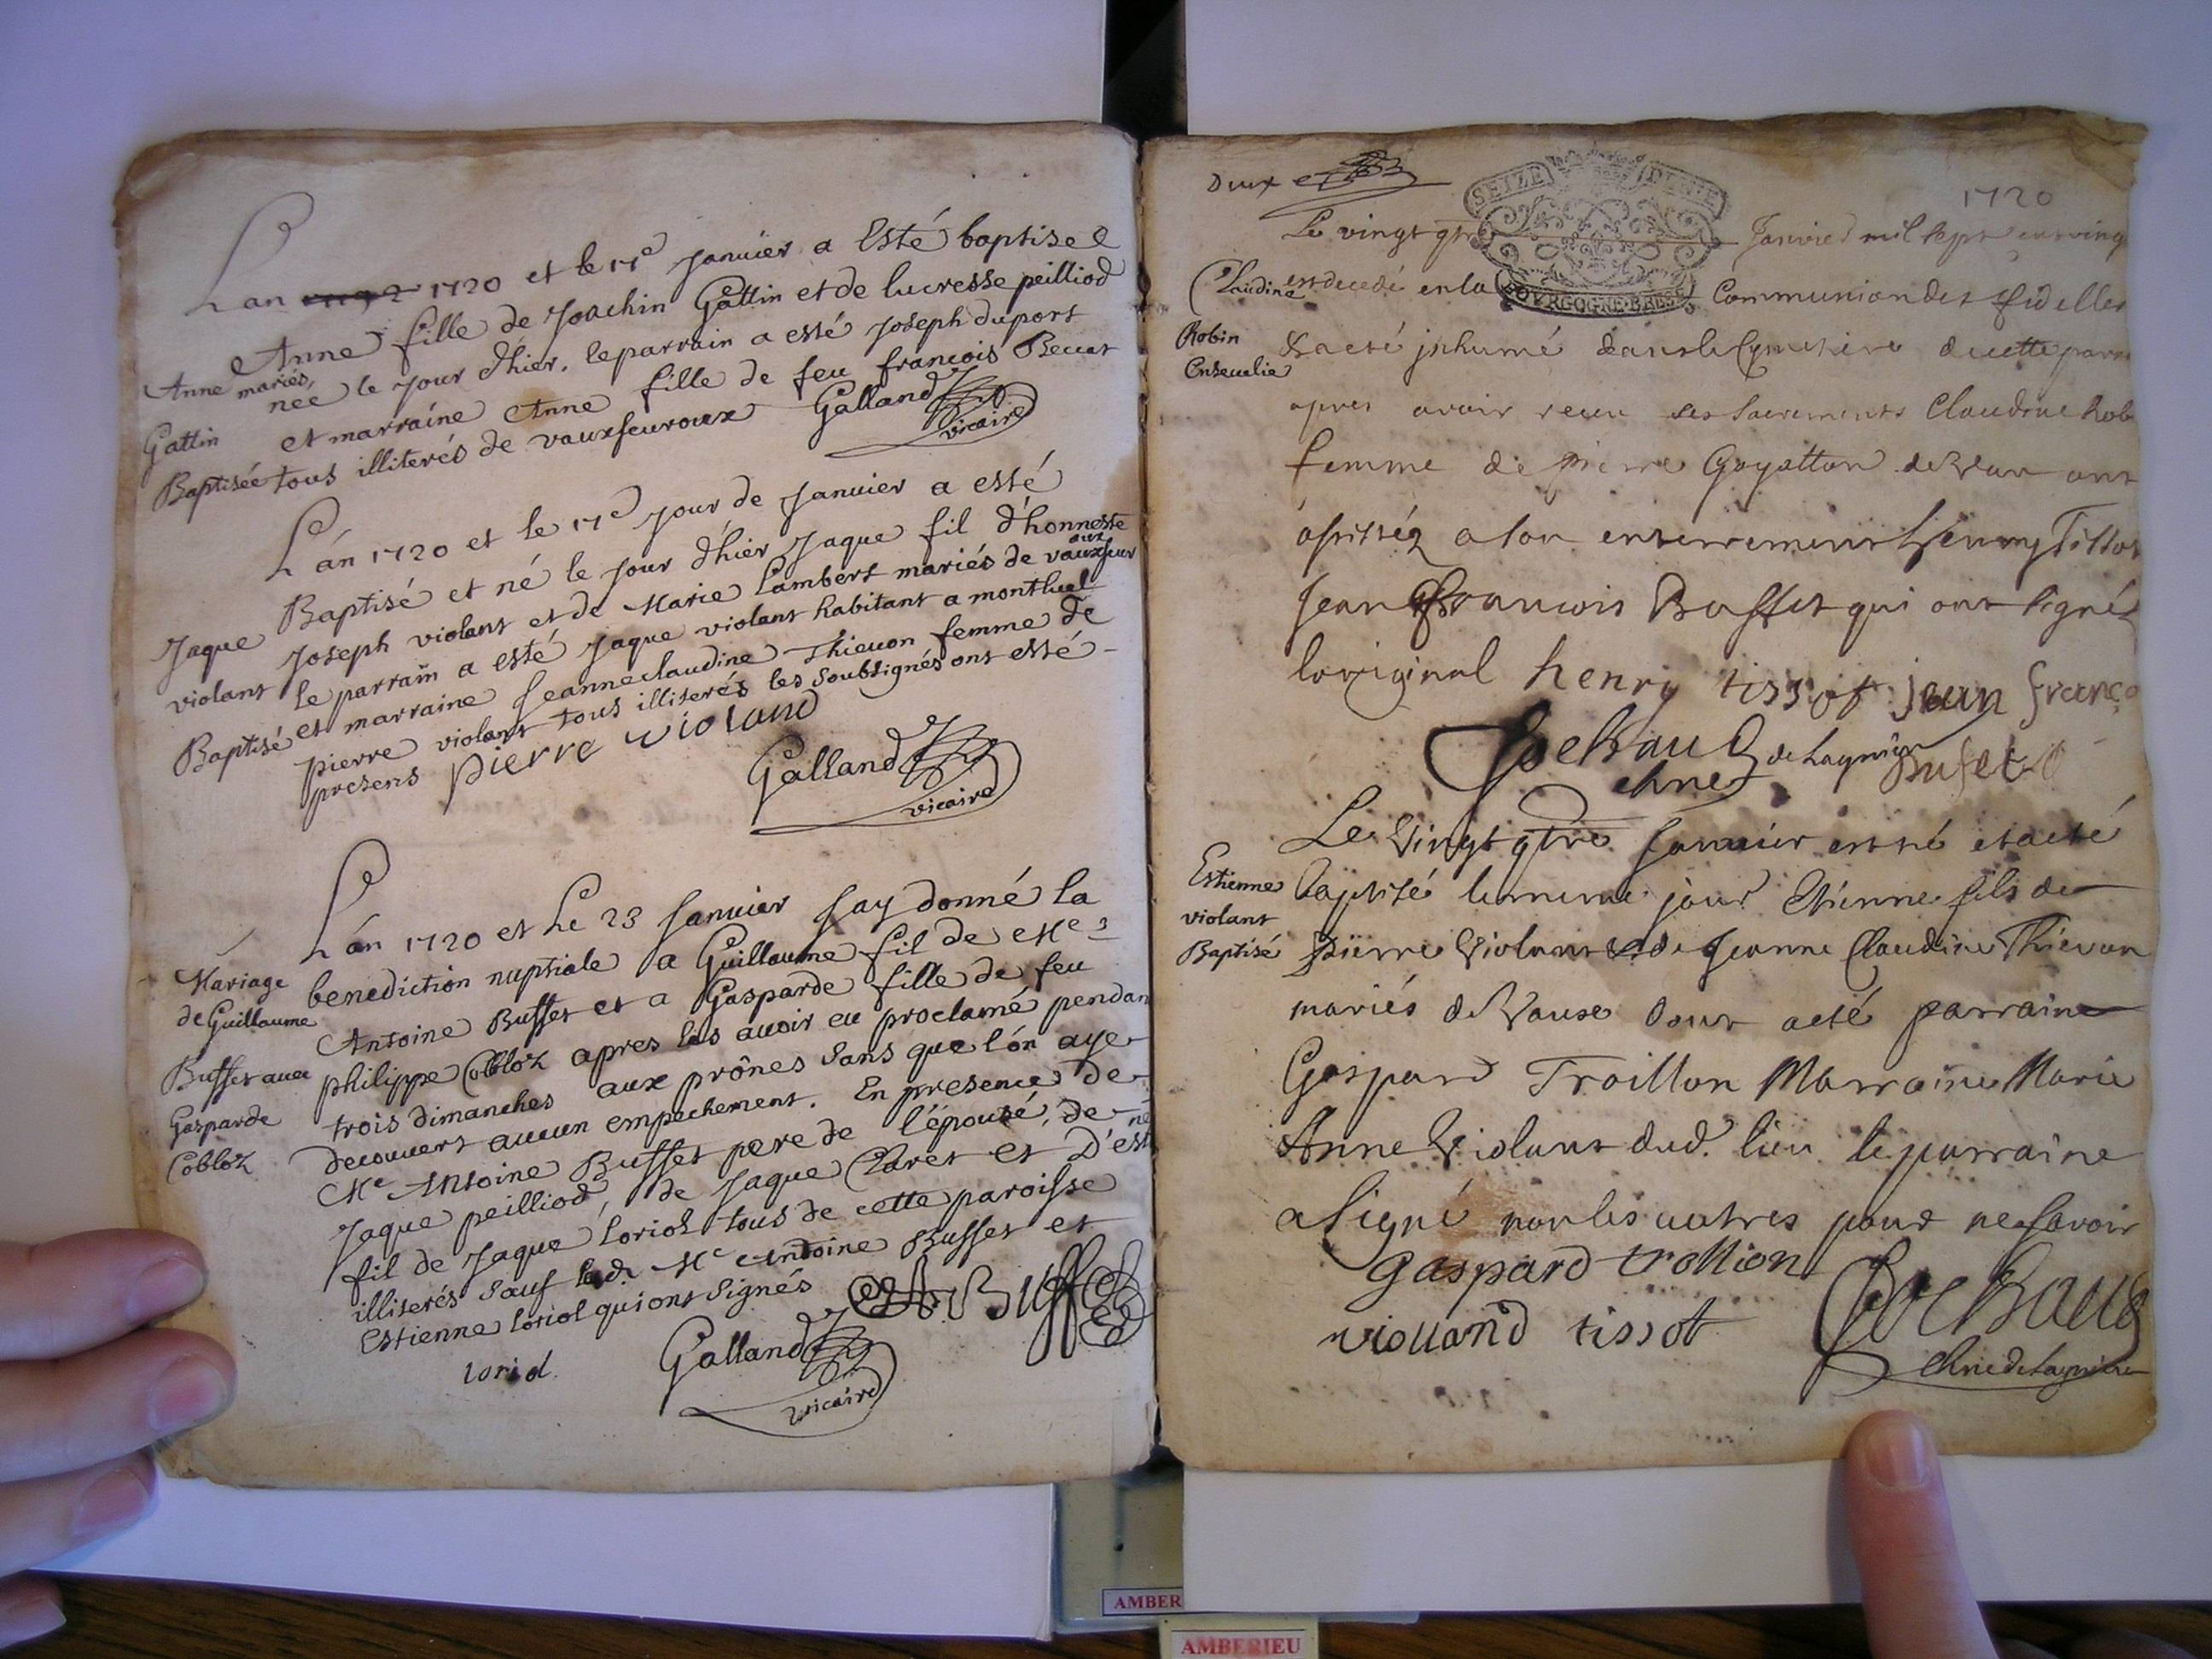 Lan 1720 et le 17e Januier a Esté baptisee
Anne fille de Joachin Gattin et de lucresse peilliod
mariés,
née le Jour d'hier. le parrain a esté Joseph duport
et marraine Anne fille de feu francois Beccat
tous illiterés de vauxfeuroux Galland
vicaire
Anne
Gattin
Baptisée
Lán 1720 et le 17e Jour de Januier a esté
Baptisé et né le Jour d'hier Jaque fil d'honneste
Joseph violant et de Marie Lambert mariés de vauxfeur
oux
le parrain a esté Jaque violant habitant a montluel
et marraine Jeanneclaudine Thieuon femme de
pierre violant tous illiterés les soubsignés ont esté
presens pierre violand
Galland
vicaire
Jaque
violant
Baptisé
Lán 1720 et Le 23 Januier Jay donné la
benediction nuptiale a Guillaume fil de Me
Antoine Buffet et a Gasparde fille de feu
philippe Cobloz apres les auoir eu proclamé pendan
trois dimanches aux prônes sans que l'ón aye
decouuert aucun empechement. En presence de
Me Antoine Buffet pere de l'épousé, de
Jaque peilliod, de Jaque Claret et D'estie
ne
fil de Jaque Loriol tous de cette paroisse
illiterés sauf led. Me Antoine Buffet et
Estienne loriol qui ont signés A. Buffet
loriol Galland
vicaire
Mariage
de Guillaume
Buffet auec
Gasparde
Cobloz
Deux
SEIZE DENIE
BOURGOGNE BRESS
1720
Le vingt qtre Janvier mil sept cent ving
est decedé en la Communion des fidelles
& a eté jnhumé dans le Cymetiere de cette paroi
apres avoir receu les sacrements Claudine Rob
femme de pierre Goyatton de Vaux ont
assistéz a son enterrement henry Tissot
Jean francois Buffet qui ont signéz
loriginal henry tissot jean franço
bufet
de Lagnieu
Claudine
Robin
Enseuelie
Le vingt qtre Januier est né et a eté
baptisé le meme jour Etienne fils de
pierre Violant & de Jeanne Claudine Thievon
mariés de Vaux dont a eté parraine
Gaspard Troillon Marraine Marie
Anne Violant dud. lieu le parraine
a signé non les autres pour ne savoir
gaspard trollion
violland tissot
Estienne
violant
Baptisé
AMBER
AMBERIEU